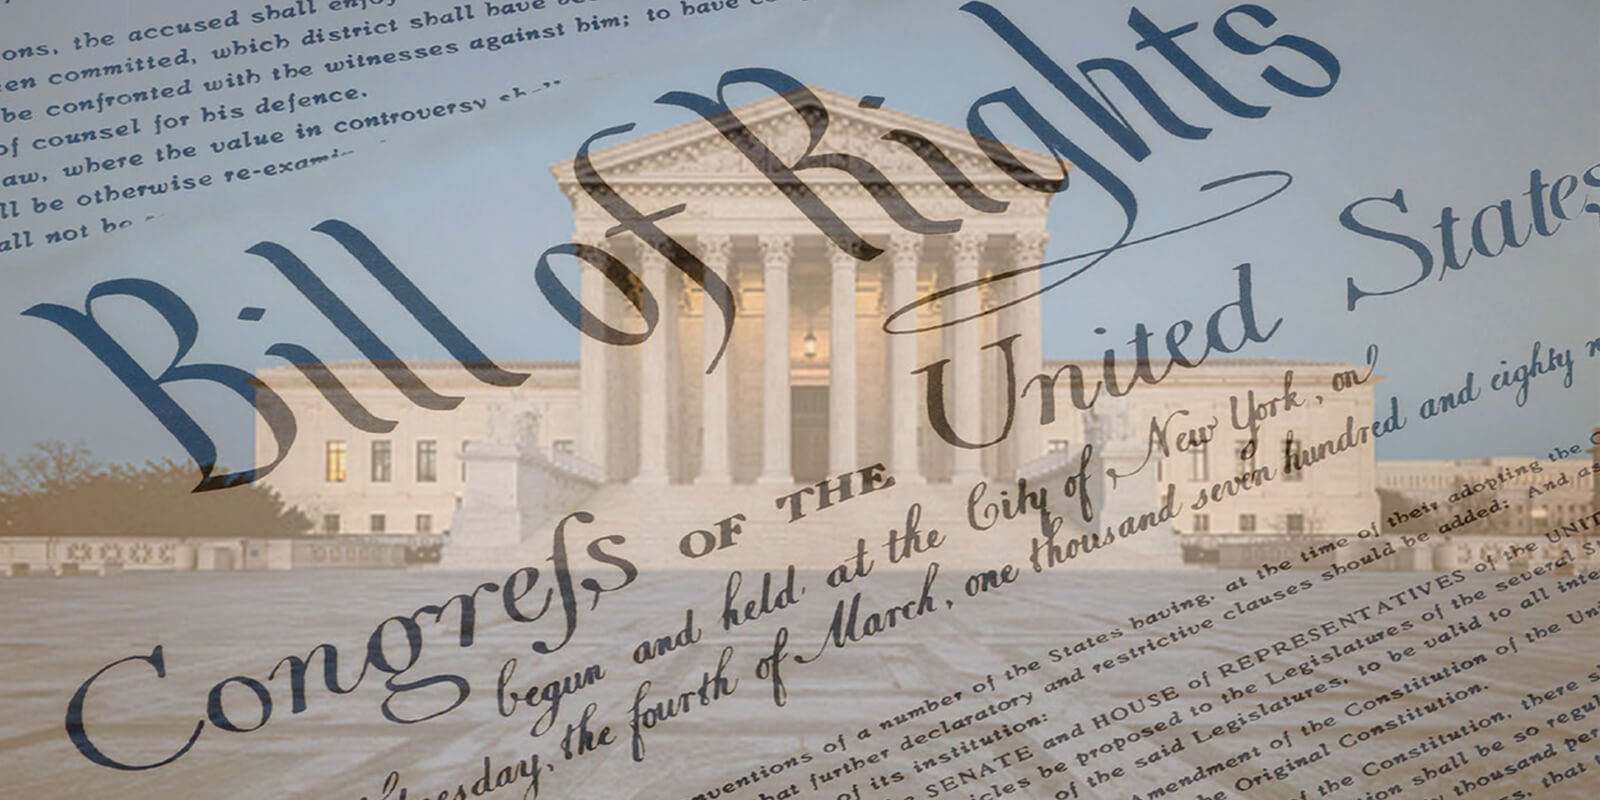 ons, the accused shall enjoy
en committed, which district shall have
be confronted with the witnesses against him; to have
of counsel for his defence.
aw, where the value in controversy
ll be otherwise re-exami
all not be
Bill of Rights
Congreſs OF THE United States
begun and held at the City of New York, on
the fourth of March, one thousand seven hundred and eighty
nventions of a number of the States having, at the time of their adopting the
hat further declaratory and restrictive clauses should be added: And as
of its institution:
SENATE and HOUSE of REPRESENTATIVES of the UNIT
icles be proposed to the Legislatures of the several S
of the said Legislatures, to be valid to all inte
Amendment of the Constitution of the Uni
Original Constitution.
of the Constitution, there s
tion shall be so regul
thousand per
that